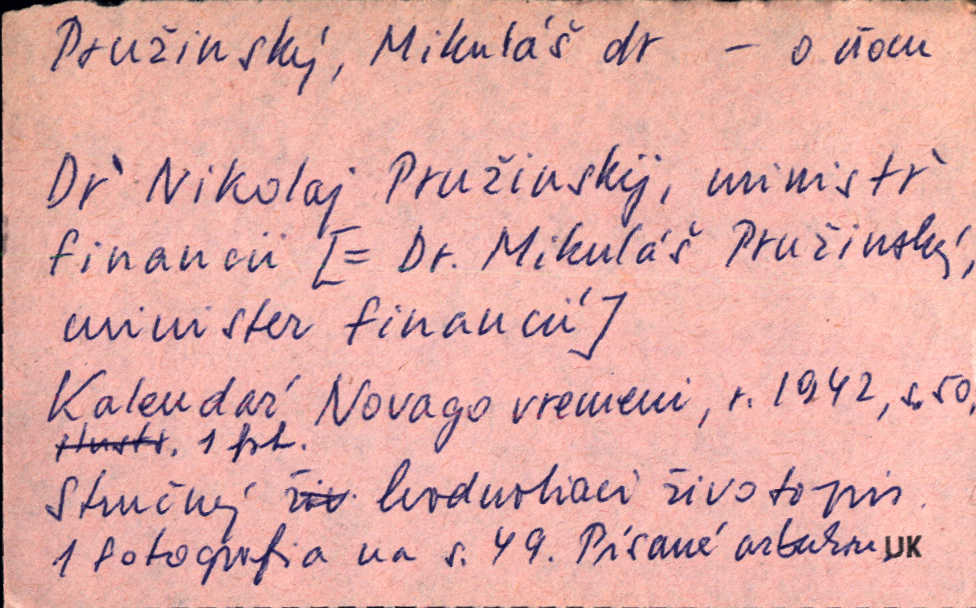 Pružinský, Mikuláš dr – o ňom
Dr' Nikolaj Pružinskij, ministr'
financii [= Dr. Mikuláš Pružinský,
minister financií]
Kalendar' Novago vremeni, r. 1942, s. 50,
ilustr. 1 fot.
Stručný živ. hodnotiaci životopis.
1 fotografia na s. 49. Písané azbukou UK